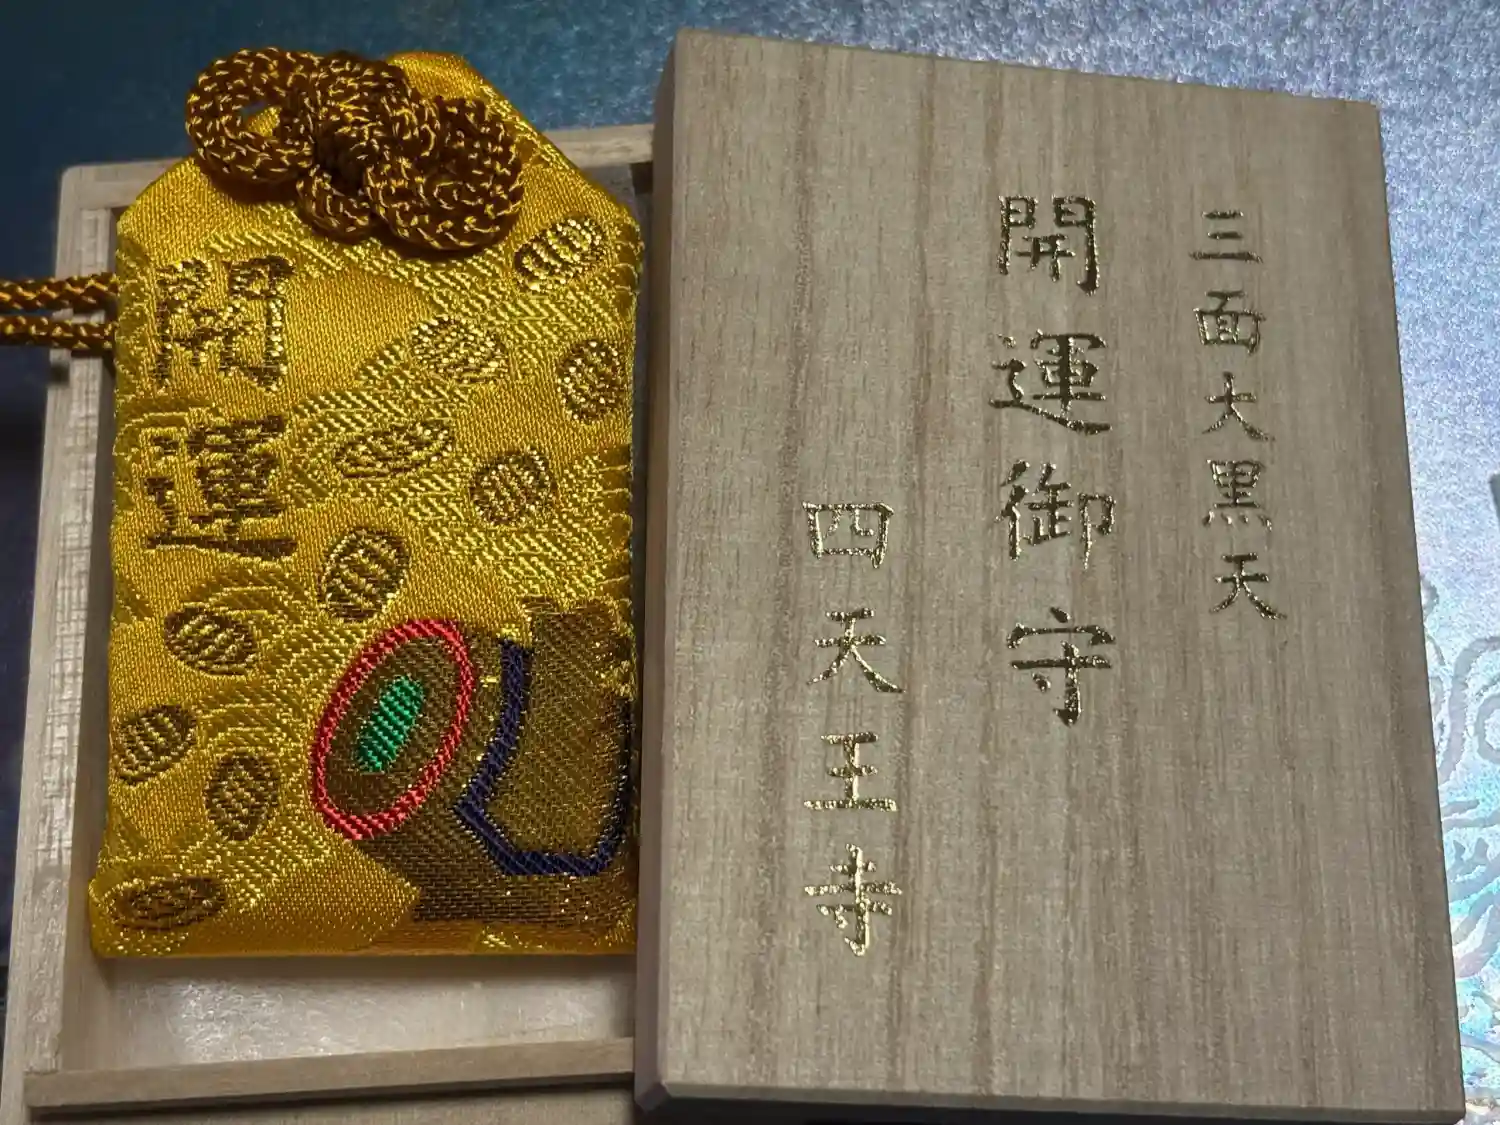 三面大黒天
開運御守
四天王寺
開運